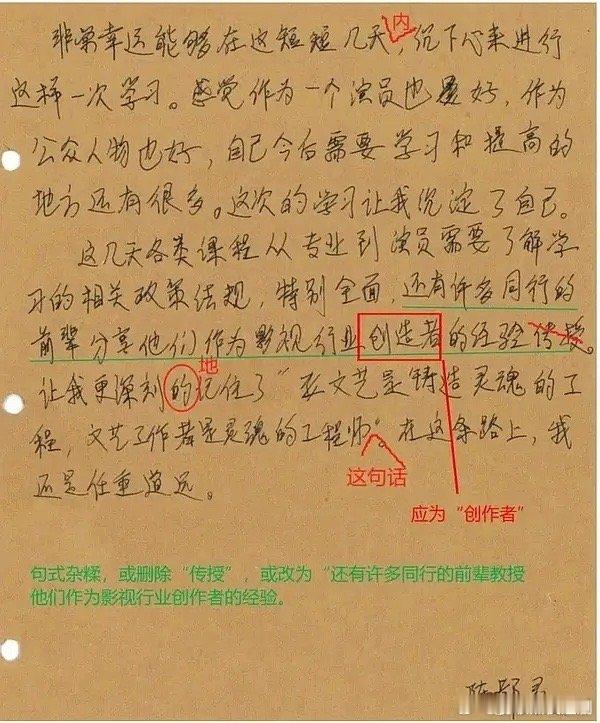 非常幸运能够在这短短几天内沉下心来进行
这样一次学习。感觉作为一个演员也是好，作为
公众人物也好，自己今后需要学习和提高的
地方还有很多。这次的学习让我沉淀了自己。
这几天各类课程从专业到演员需要了解学
习的相关政策法规，特别全面，还有许多同行的
前辈分享他们作为影视行业创造者的经验传授。
地
让我更深刻的记住了“文艺是铸造灵魂的工
程，文艺工作者是灵魂的工程师”。在这条路上，我
这句话
还是任重道远。
应为“创作者”
句式杂糅，或删除“传授”，或改为“还有许多同行的前辈教授
他们作为影视行业创作者的经验。